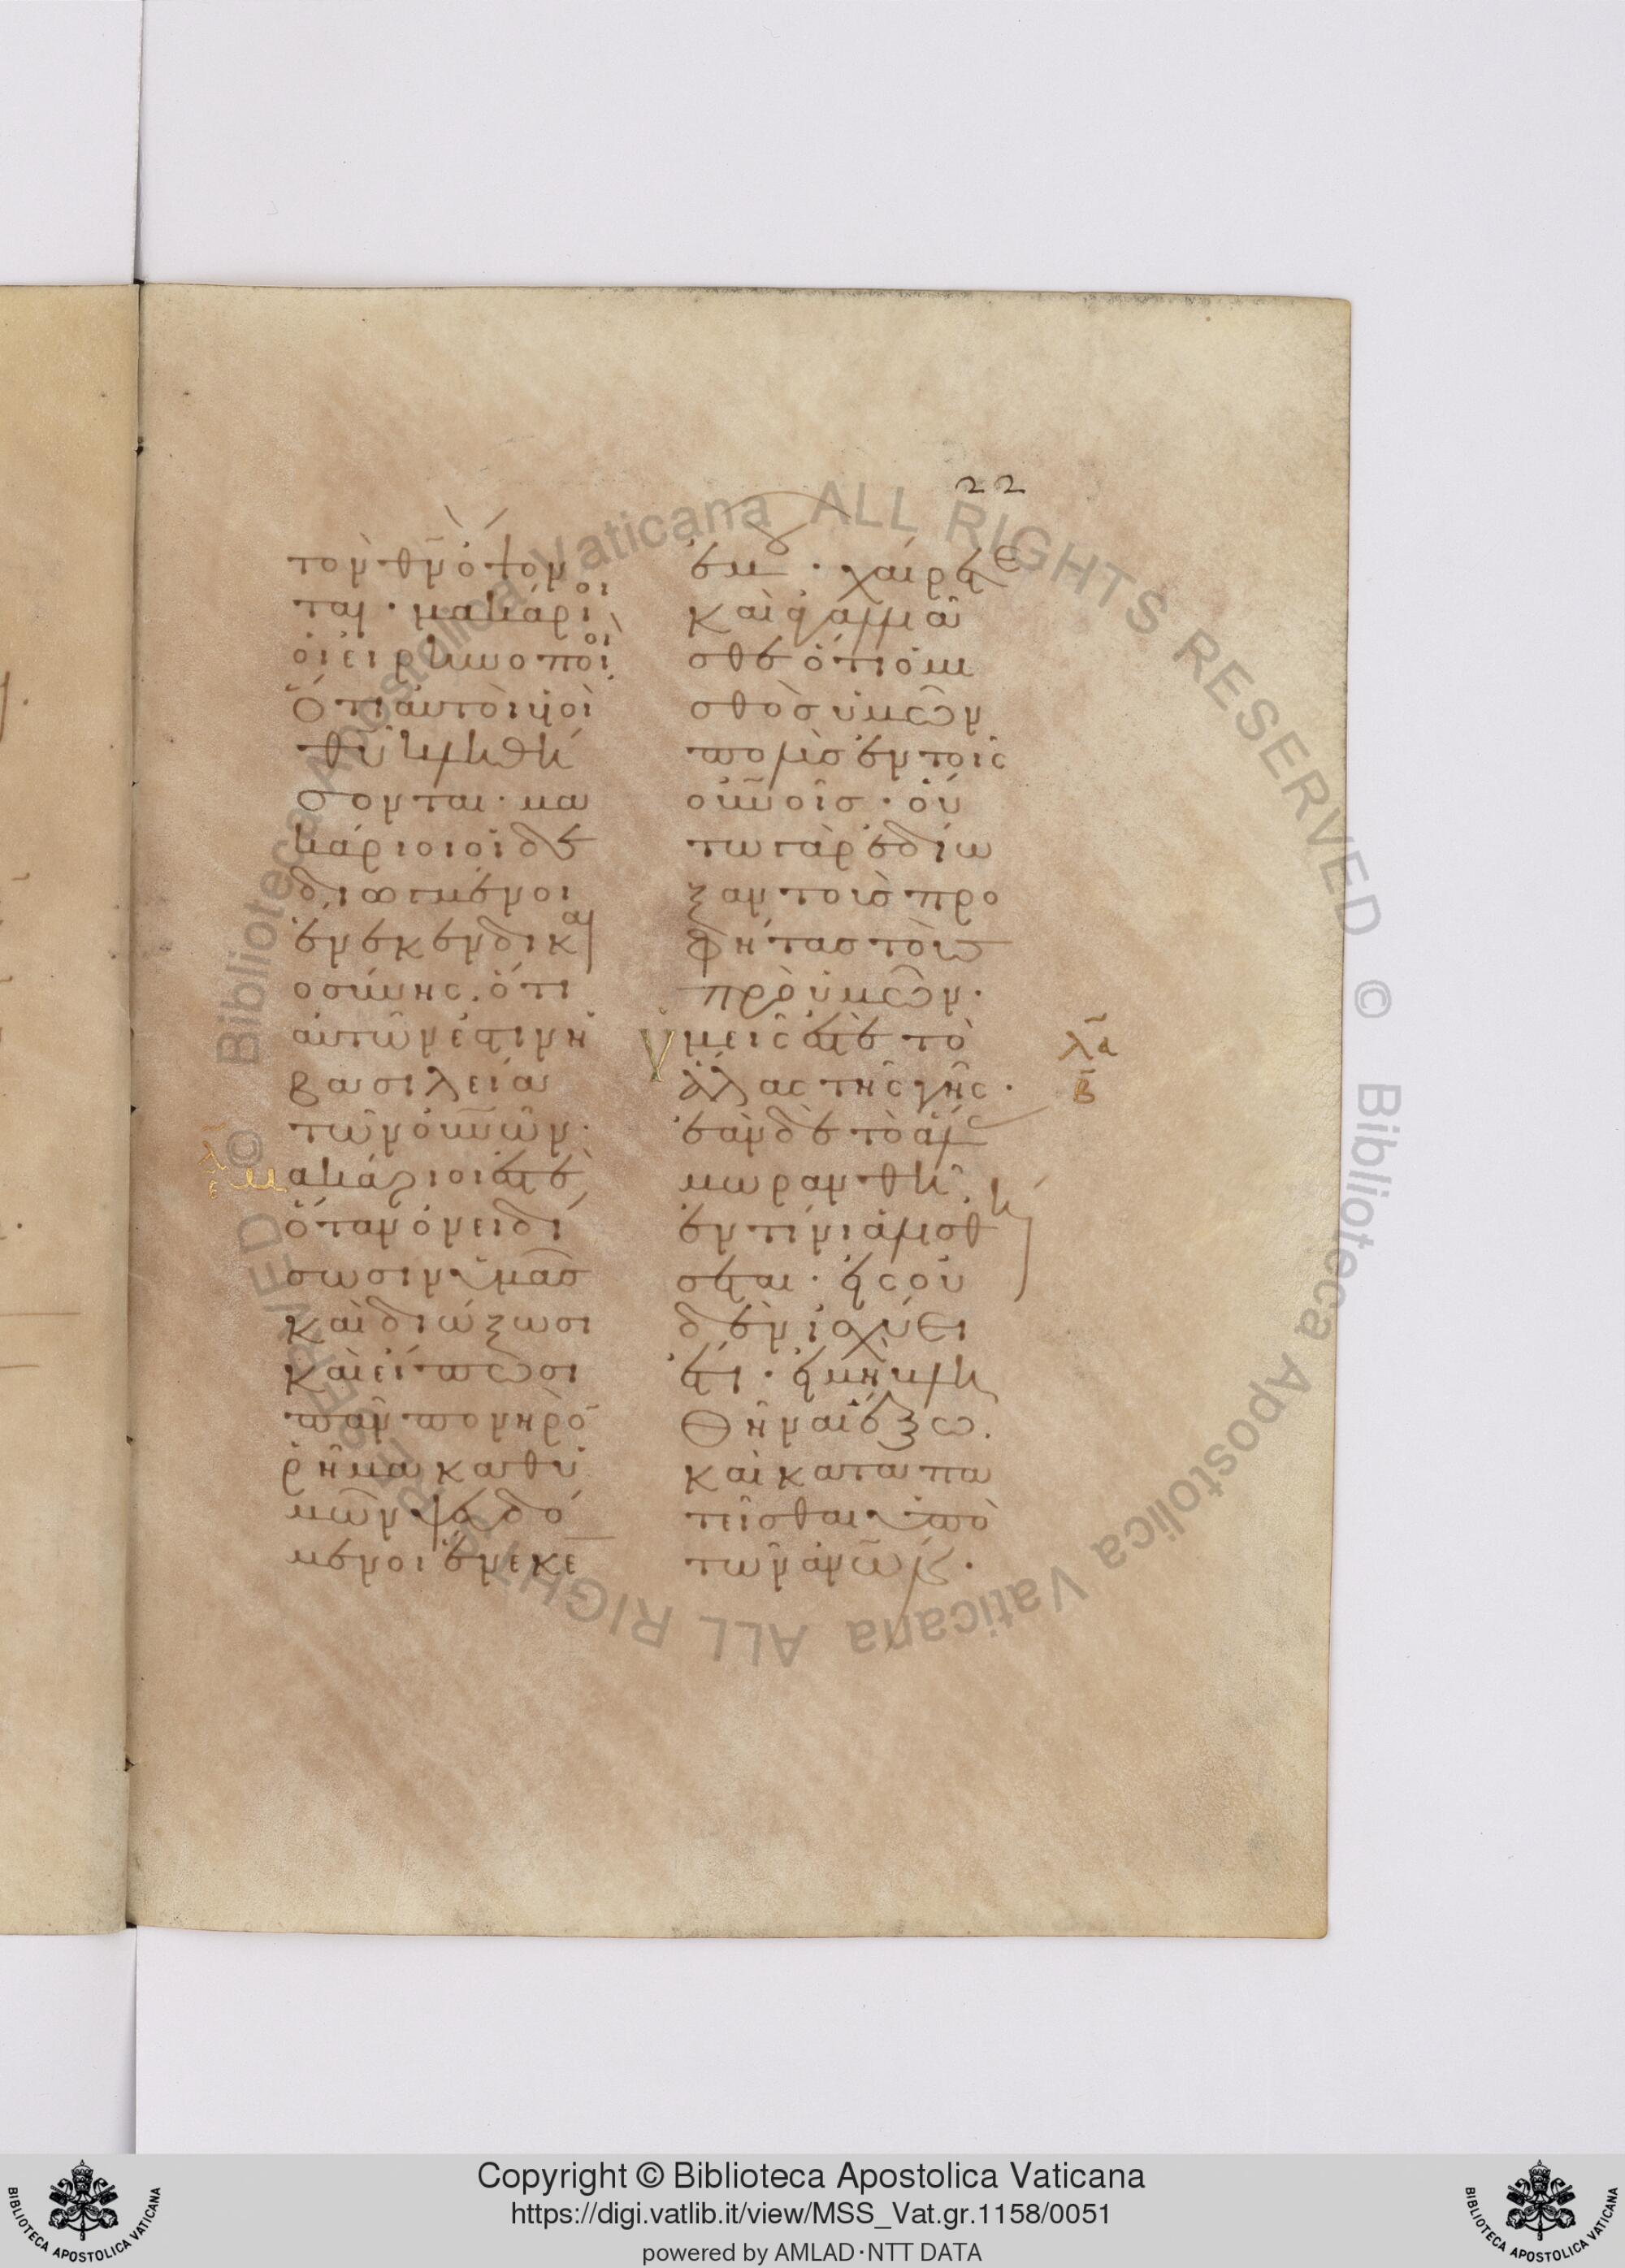 22
τὸν θν̅ ὄψον
ται · μακάριοι
οἱ εἰρηνοποιοὶ
ὅτι αὐτοὶ υἱοὶ
θυ̅ κληθή
σονται · μα
κάριοι οἱ δε
διωγμένοι
ἕνεκεν δικαι
οσύνης. ὅτι
αὐτῶν ἐστιν ἡ
βασιλεία
τῶν οὐν̅ῶν·
μακάριοι ἐστὲ
ὅταν ὀνειδί
σωσιν ὑμᾶς
καὶ διώξωσι
καὶ εἴπωσι
πᾶν πονηρὸ̅
ῥῆμα καθ' ὑ
μῶν ψευδό
μενοι ἕνεκε̅
ἐμοῦ · χαίρετε
καὶ ἀγαλλιᾶ
σθε ὅτι ὁ μι
σθὸς ὑμῶν
πολὺς ἐν τοῖς
οὐν̅οῖς · οὕ
τω γὰρ ἐδίω
ξαν τοὺς προ
φήτας τοὺς
πρὸ ὑμῶν·
ὑμεῖς ἐστὲ τὸ
ἅλας τῆς γῆς ·
ἐὰν δὲ τὸ ἅλας
μωρανθῆ
ἐν τίνι ἁλισθή
σεται · εἰς οὐ
δὲν ἰσχύει
ἔτι · εἰ μὴ βλη
θῆναι ἔξω.
καὶ καταπα
τεῖσθαι ὑπὸ
τῶν ἀν̅ῶν ·
λα̅
β̅
Copyright © Biblioteca Apostolica Vaticana
https://digi.vatlib.it/view/MSS_Vat.gr.1158/0051
powered by AMLAD·NTT DATA
BIBLIOTECA APOSTOLICA VATICANA
BIBLIOTECA APOSTOLICA VATICANA
© Biblioteca Apostolica Vaticana ALL RIGHTS RESERVED © Biblioteca Apostolica Vaticana ALL RIGHTS RESERVED